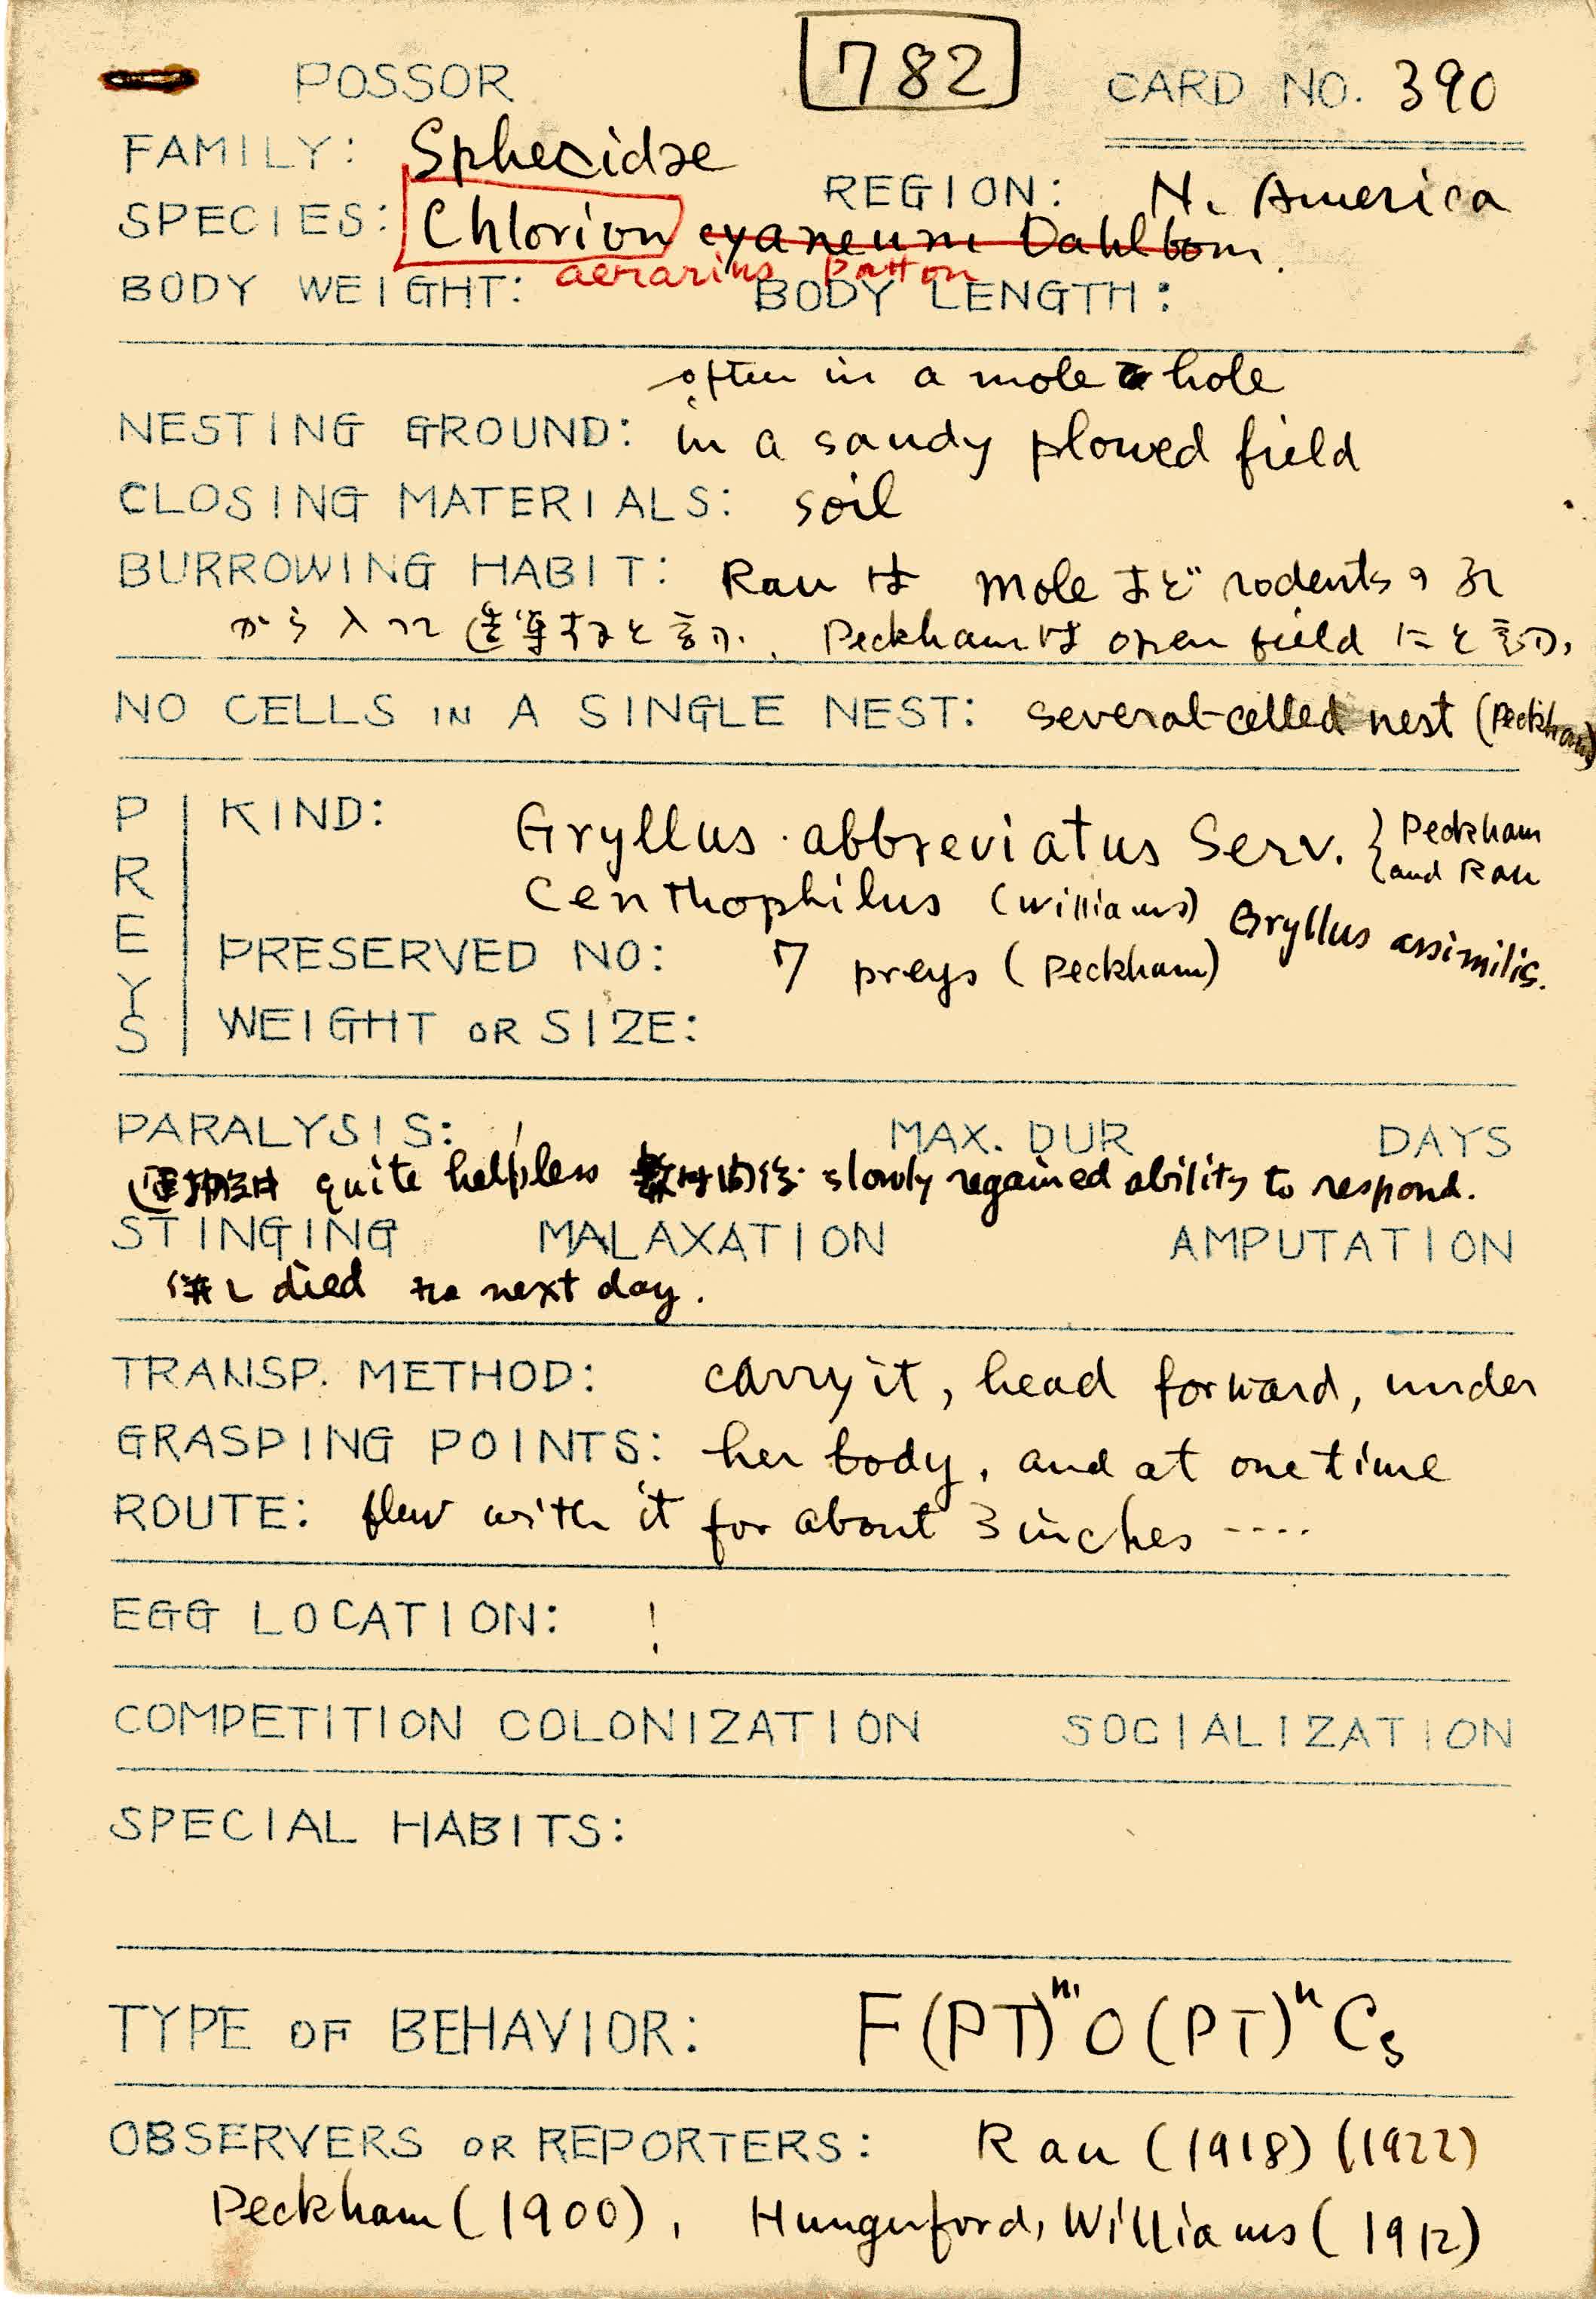 POSSOR
782
CARD NO. 390
FAMILY: Sphecidae
REGION: N. America
SPECIES: Chlorion cyaneum Dahlbom.
aerarius Patton
BODY WEIGHT: BODY LENGTH:
often in a mole hole
NESTING GROUND: in a sandy plowed field
CLOSING MATERIALS: soil
BURROWING HABIT: Rau は mole など rodents の孔
から入って造巣すると言う. Peckhamは open field にと言う,
NO CELLS IN A SINGLE NEST: several-celled nest (Peckham)
PREYS
KIND: Gryllus abbreviatus Serv. } Peckham and Rau
Centhophilus (Williams) Gryllus assimilis.
PRESERVED NO: 7 preys (Peckham)
WEIGHT OR SIZE:
PARALYSIS: ! MAX. DUR DAYS
quite helpless 数時間後 slowly regained ability to respond.
STINGING MALAXATION AMPUTATION
died the next day.
TRANSP. METHOD: carry it, head forward, under
GRASPING POINTS: her body, and at one time
ROUTE: flew with it for about 3 inches ----
EGG LOCATION: !
COMPETITION COLONIZATION SOCIALIZATION
SPECIAL HABITS:
TYPE OF BEHAVIOR: F(PT)ⁿ'O(PT)ⁿCs
OBSERVERS OR REPORTERS: Rau (1918) (1922)
Peckham (1900), Hungerford, Williams (1912)